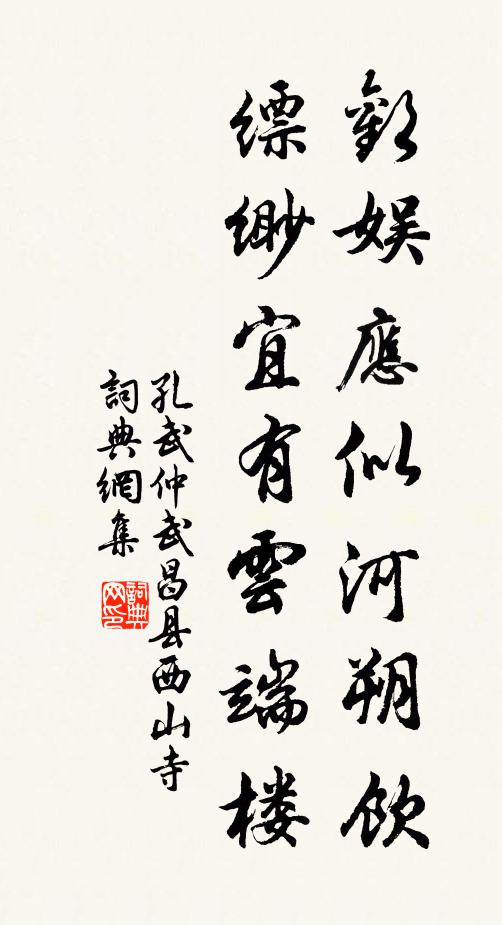 歡娱應似河朔飲
縹緲宜有雲端楼
孔武仲武昌县西山寺
詞典網集
詞典网印